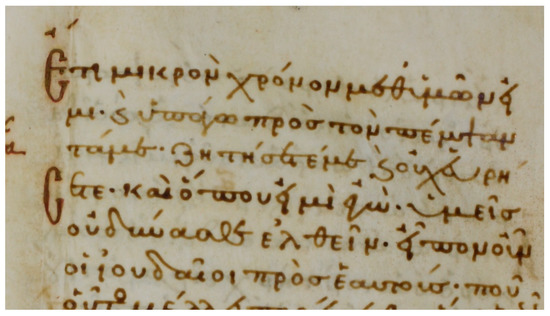 Ἔτι μικρὸν χρόνον μεθ' ὑμῶν εἰ
μι· καὶ ὑπάγω πρὸς τὸν πέμψαν
τά με· ζητήσετέ με καὶ οὐχ εὑρή
σετε· καὶ ὅπου εἰμὶ ἐγὼ· ὑμεῖς
οὐ δύνασθε ἐλθεῖν· εἶπον οὖν
οἱ ἰουδαῖοι πρὸς ἑαυτούς· ποῦ
οὗτος μέλλει